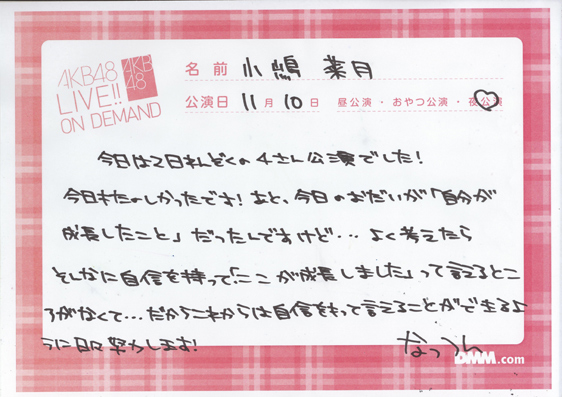 AKB48
LIVE!!
ON DEMAND
AKB
48
名前 小嶋 菜月
公演日 11月10日 昼公演・おやつ公演・夜公演
今日は2日れんぞくの4さん公演でした!
今日もたのしかったです!あと、今日のおだいが「自分が
成長したこと」だったんですけど…よく考えたら
そんなに自信を持って「ここが成長しました」って言えるとこ
ろがなくて…だからこれからは自信をもって言えることができるよ
うに日々努力します!
なっつん
DMM.com